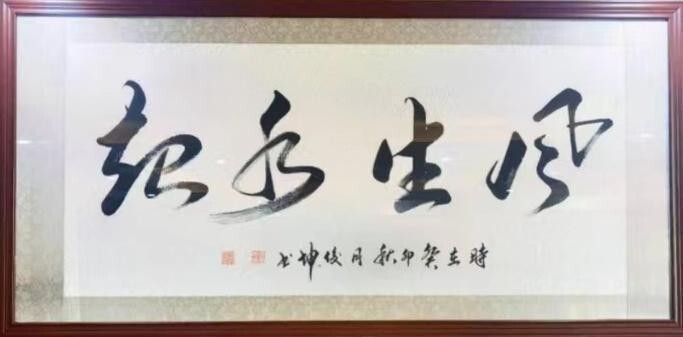 風生水起
時在癸卯秋月俊坤书